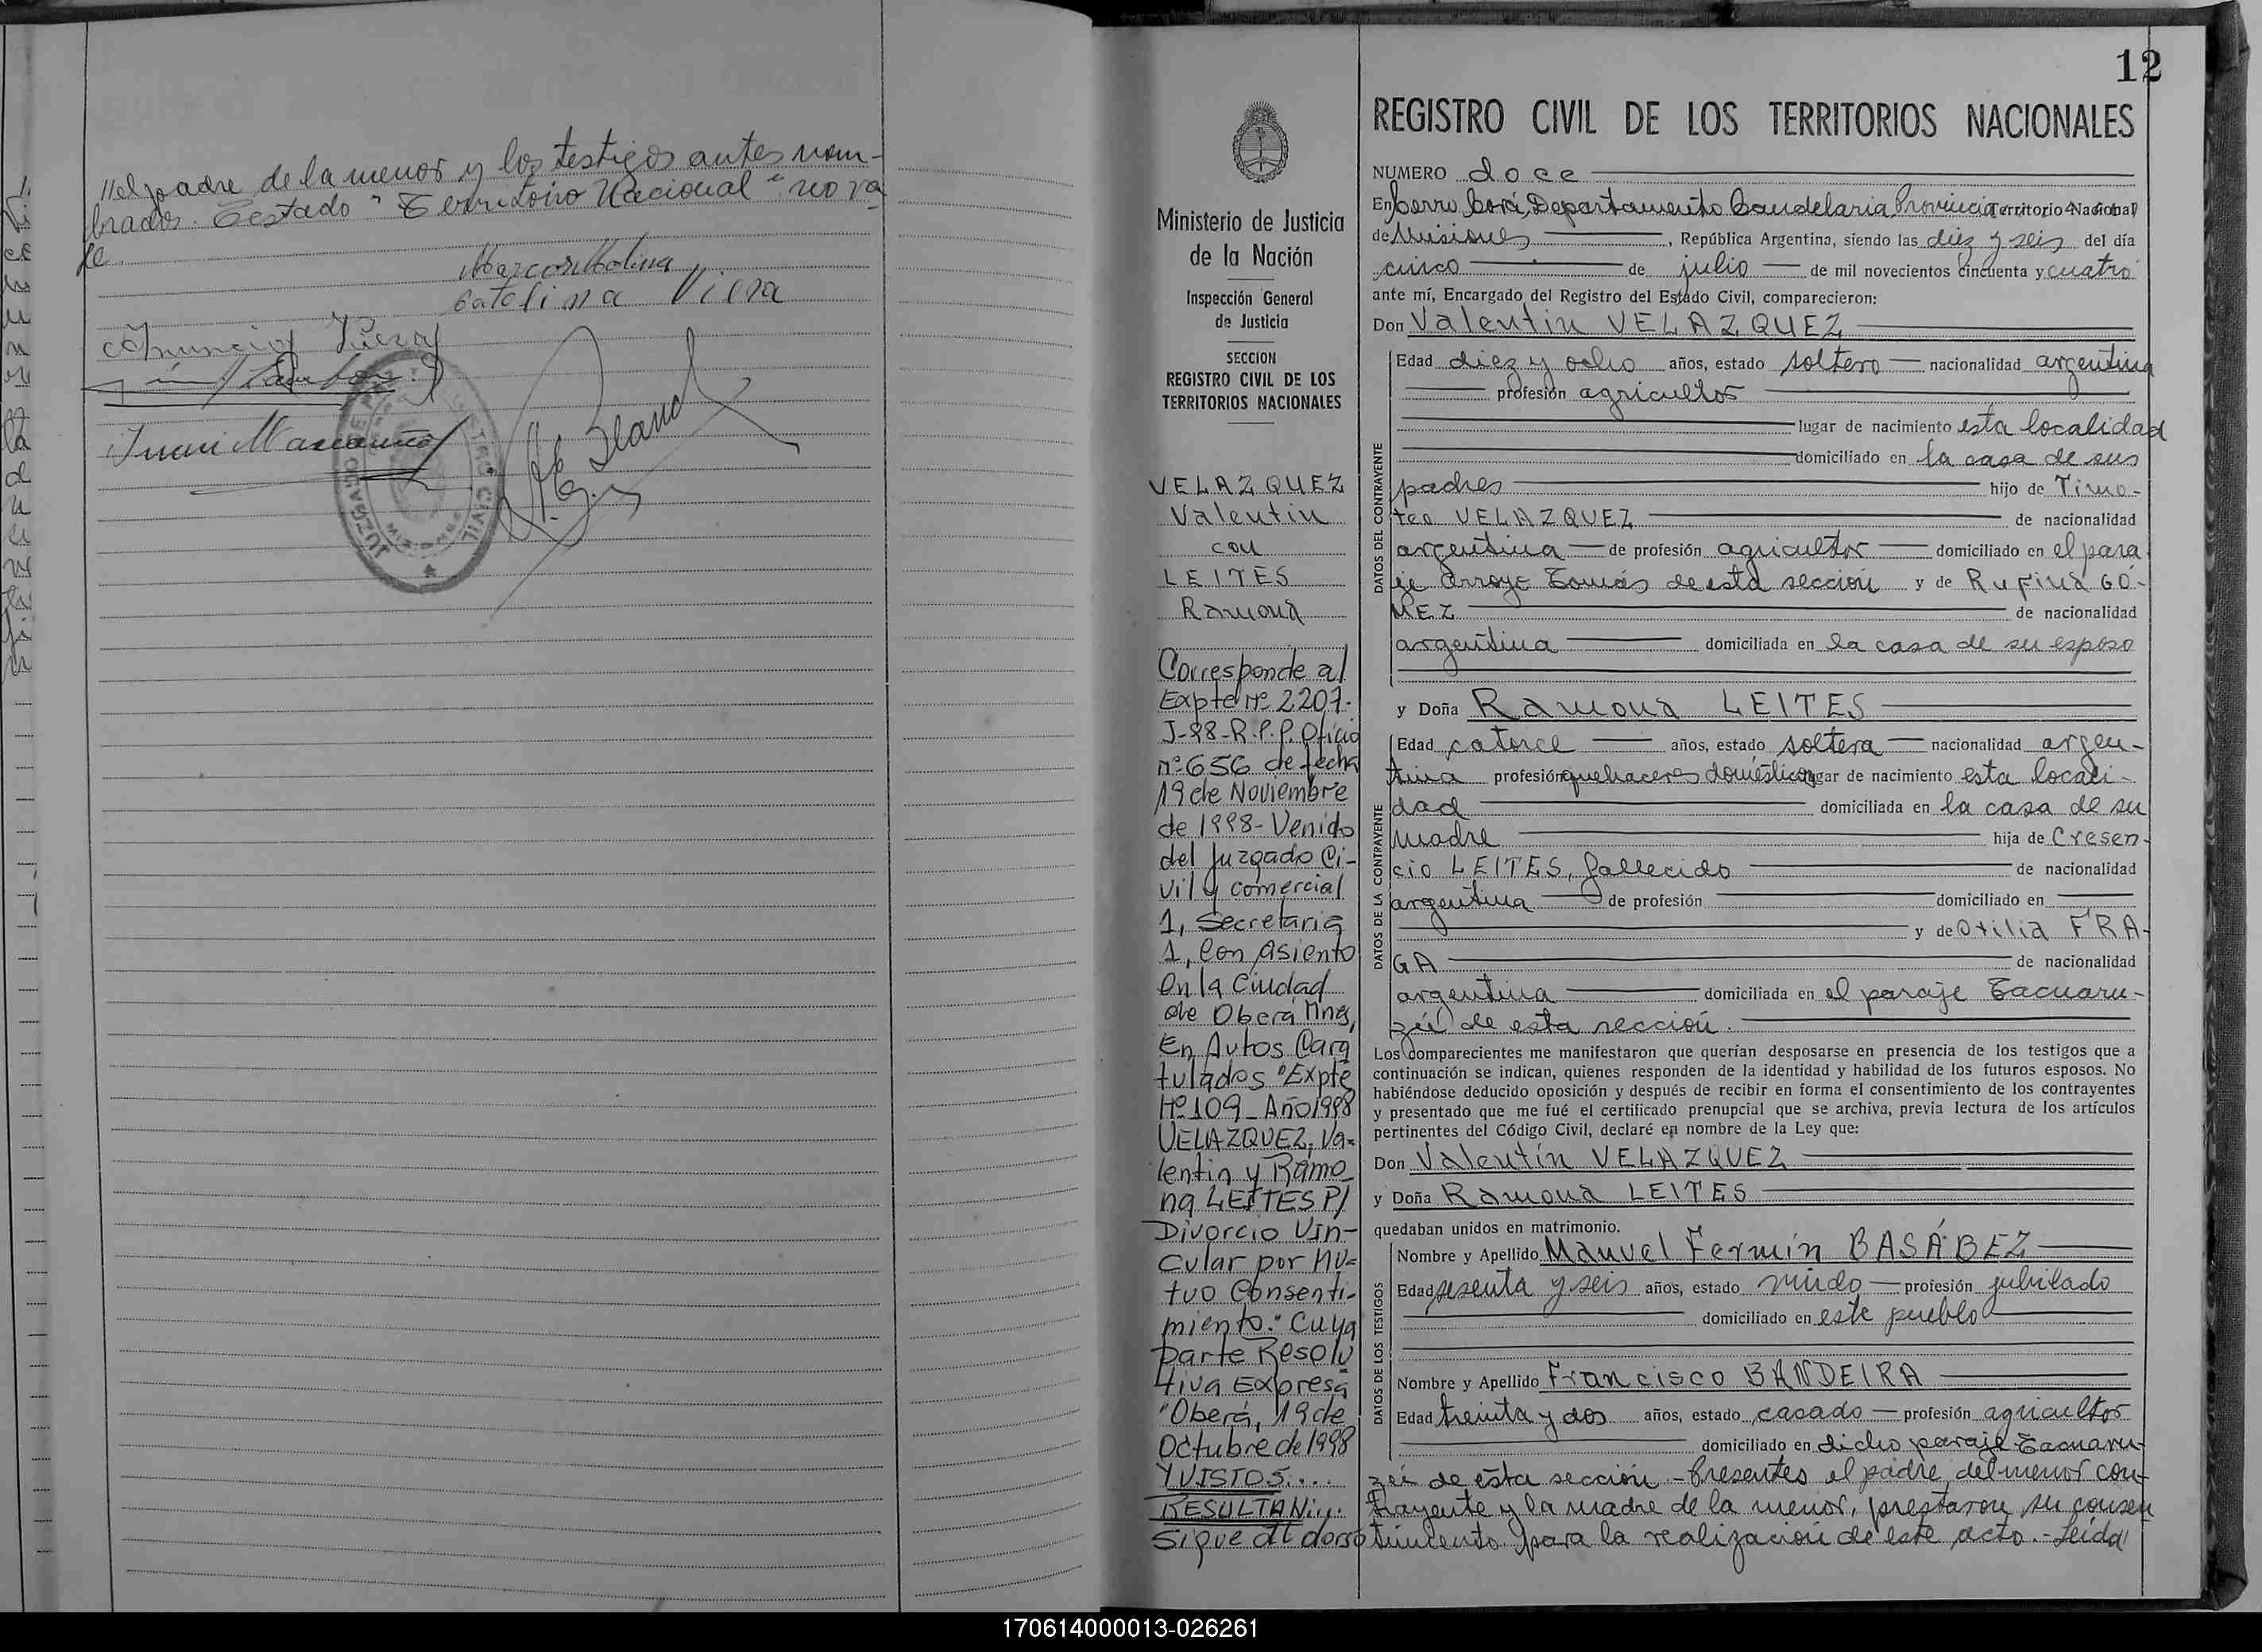 //el padre de la menor y los testigos antes nom-
brados. Testado "Territorio Nacional" no va
le.
Marcos Molina
Catalina Viera
Juan
JUZGADO DE
REGISTRO CIVIL
MISIONES
12
REGISTRO CIVIL DE LOS TERRITORIOS NACIONALES
NUMERO doce
En Cerro Corá, Departamento Candelaria Provincia Territorio Nacional
de Misiones, República Argentina, siendo las diez y seis del día
cinco de julio de mil novecientos cincuenta y cuatro
ante mí, Encargado del Registro del Estado Civil, comparecieron:
Don Valentin VELAZQUEZ
DATOS DEL CONTRAYENTE
Edad diez y ocho años, estado soltero nacionalidad argentina
profesión agricultor
lugar de nacimiento esta localidad
domiciliado en la casa de sus
padres hijo de Timo-
teo VELAZQUEZ de nacionalidad
argentina de profesión agricultor domiciliado en el para
je Arroyo Tomás de esta sección y de Rufina GÓ-
MEZ de nacionalidad
argentina domiciliada en la casa de su esposo
y Doña Ramona LEITES
DATOS DE LA CONTRAYENTE
Edad catorce años, estado soltera nacionalidad argen-
tina profesión quehaceres domésticos lugar de nacimiento esta locali-
dad domiciliada en la casa de su
madre hija de Cresen-
cio LEITES, fallecido de nacionalidad
argentina de profesión domiciliado en
y de Otilia FRA-
GA de nacionalidad
argentina domiciliada en el paraje Tacuaru-
zú de esta sección.
Los comparecientes me manifestaron que querían desposarse en presencia de los testigos que a
continuación se indican, quienes responden de la identidad y habilidad de los futuros esposos. No
habiéndose deducido oposición y después de recibir en forma el consentimiento de los contrayentes
y presentado que me fué el certificado prenupcial que se archiva, previa lectura de los artículos
pertinentes del Código Civil, declaré en nombre de la Ley que:
Don Valentín VELAZQUEZ
y Doña Ramona LEITES
quedaban unidos en matrimonio.
DATOS DE LOS TESTIGOS
Nombre y Apellido Manuel Fermín BASÁBEZ
Edad sesenta y seis años, estado viudo profesión jubilado
domiciliado en este pueblo
Nombre y Apellido Francisco BANDEIRA
Edad treinta y dos años, estado casado profesión agricultor
domiciliado en dicho paraje Tacuaru-
zú de esta sección.- Presentes el padre del menor con-
trayente y la madre de la menor, prestaron su consen
timiento para la realización de este acto.- Leída
Ministerio de Justicia
de la Nación
Inspección General
de Justicia
SECCION
REGISTRO CIVIL DE LOS
TERRITORIOS NACIONALES
VELAZQUEZ
Valentin
con
LEITES
Ramona
Corresponde al
Expte Nº 2207.
J-98-R.P.P. Oficio
Nº 656 de fecha
19 de Noviembre
de 1998- Venido
del Juzgado Ci-
vil y comercial
1, Secretaria
1, Con Asiento
en la Ciudad
de Oberá Mnes,
En Autos Cara
tulados "Expte
Nº 109 - Año 1998
VELAZQUEZ, Va-
lentin y Ramo
na LEITES P/
Divorcio Vin-
cular por Mu-
tuo Consenti-
miento." Cuya
parte Resolu
tiva Expresa
"Oberá, 19 de
Octubre de 1998
Y VISTOS:....
RESULTAN:...
Sigue al dorso
170614000013-026261